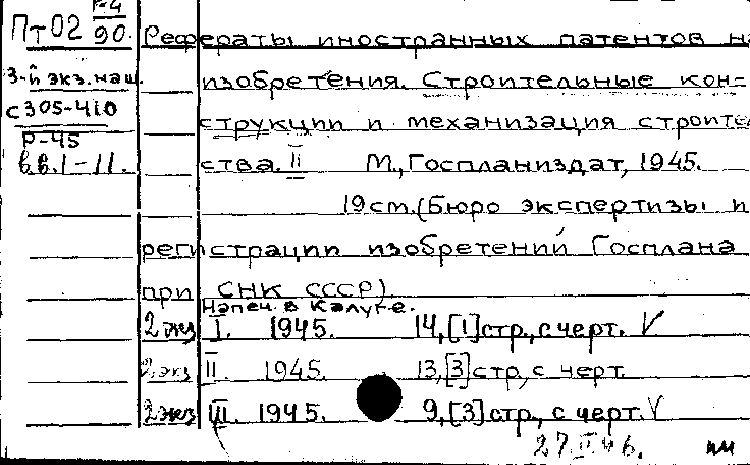 Пт02 Р-4
90.
Рефераты иностранных патентов на
3-й экз. наш.
изобретения. Строительные кон=
с 305-410
струкции и механизация строитель
Р-45
в.в. I-II.
ства. II М., Госпланиздат, 1945.
19 cm. (Бюро экспертизы и
регистрации изобретений Госплана
при СНК СССР).
Напеч. в Калуге.
2 экз I. 1945. 14, [1] стр., с черт. V
2 экз II. 1945. 13, [3] стр, с черт.
2 экз III. 1945. 9, [3] стр., с черт. V